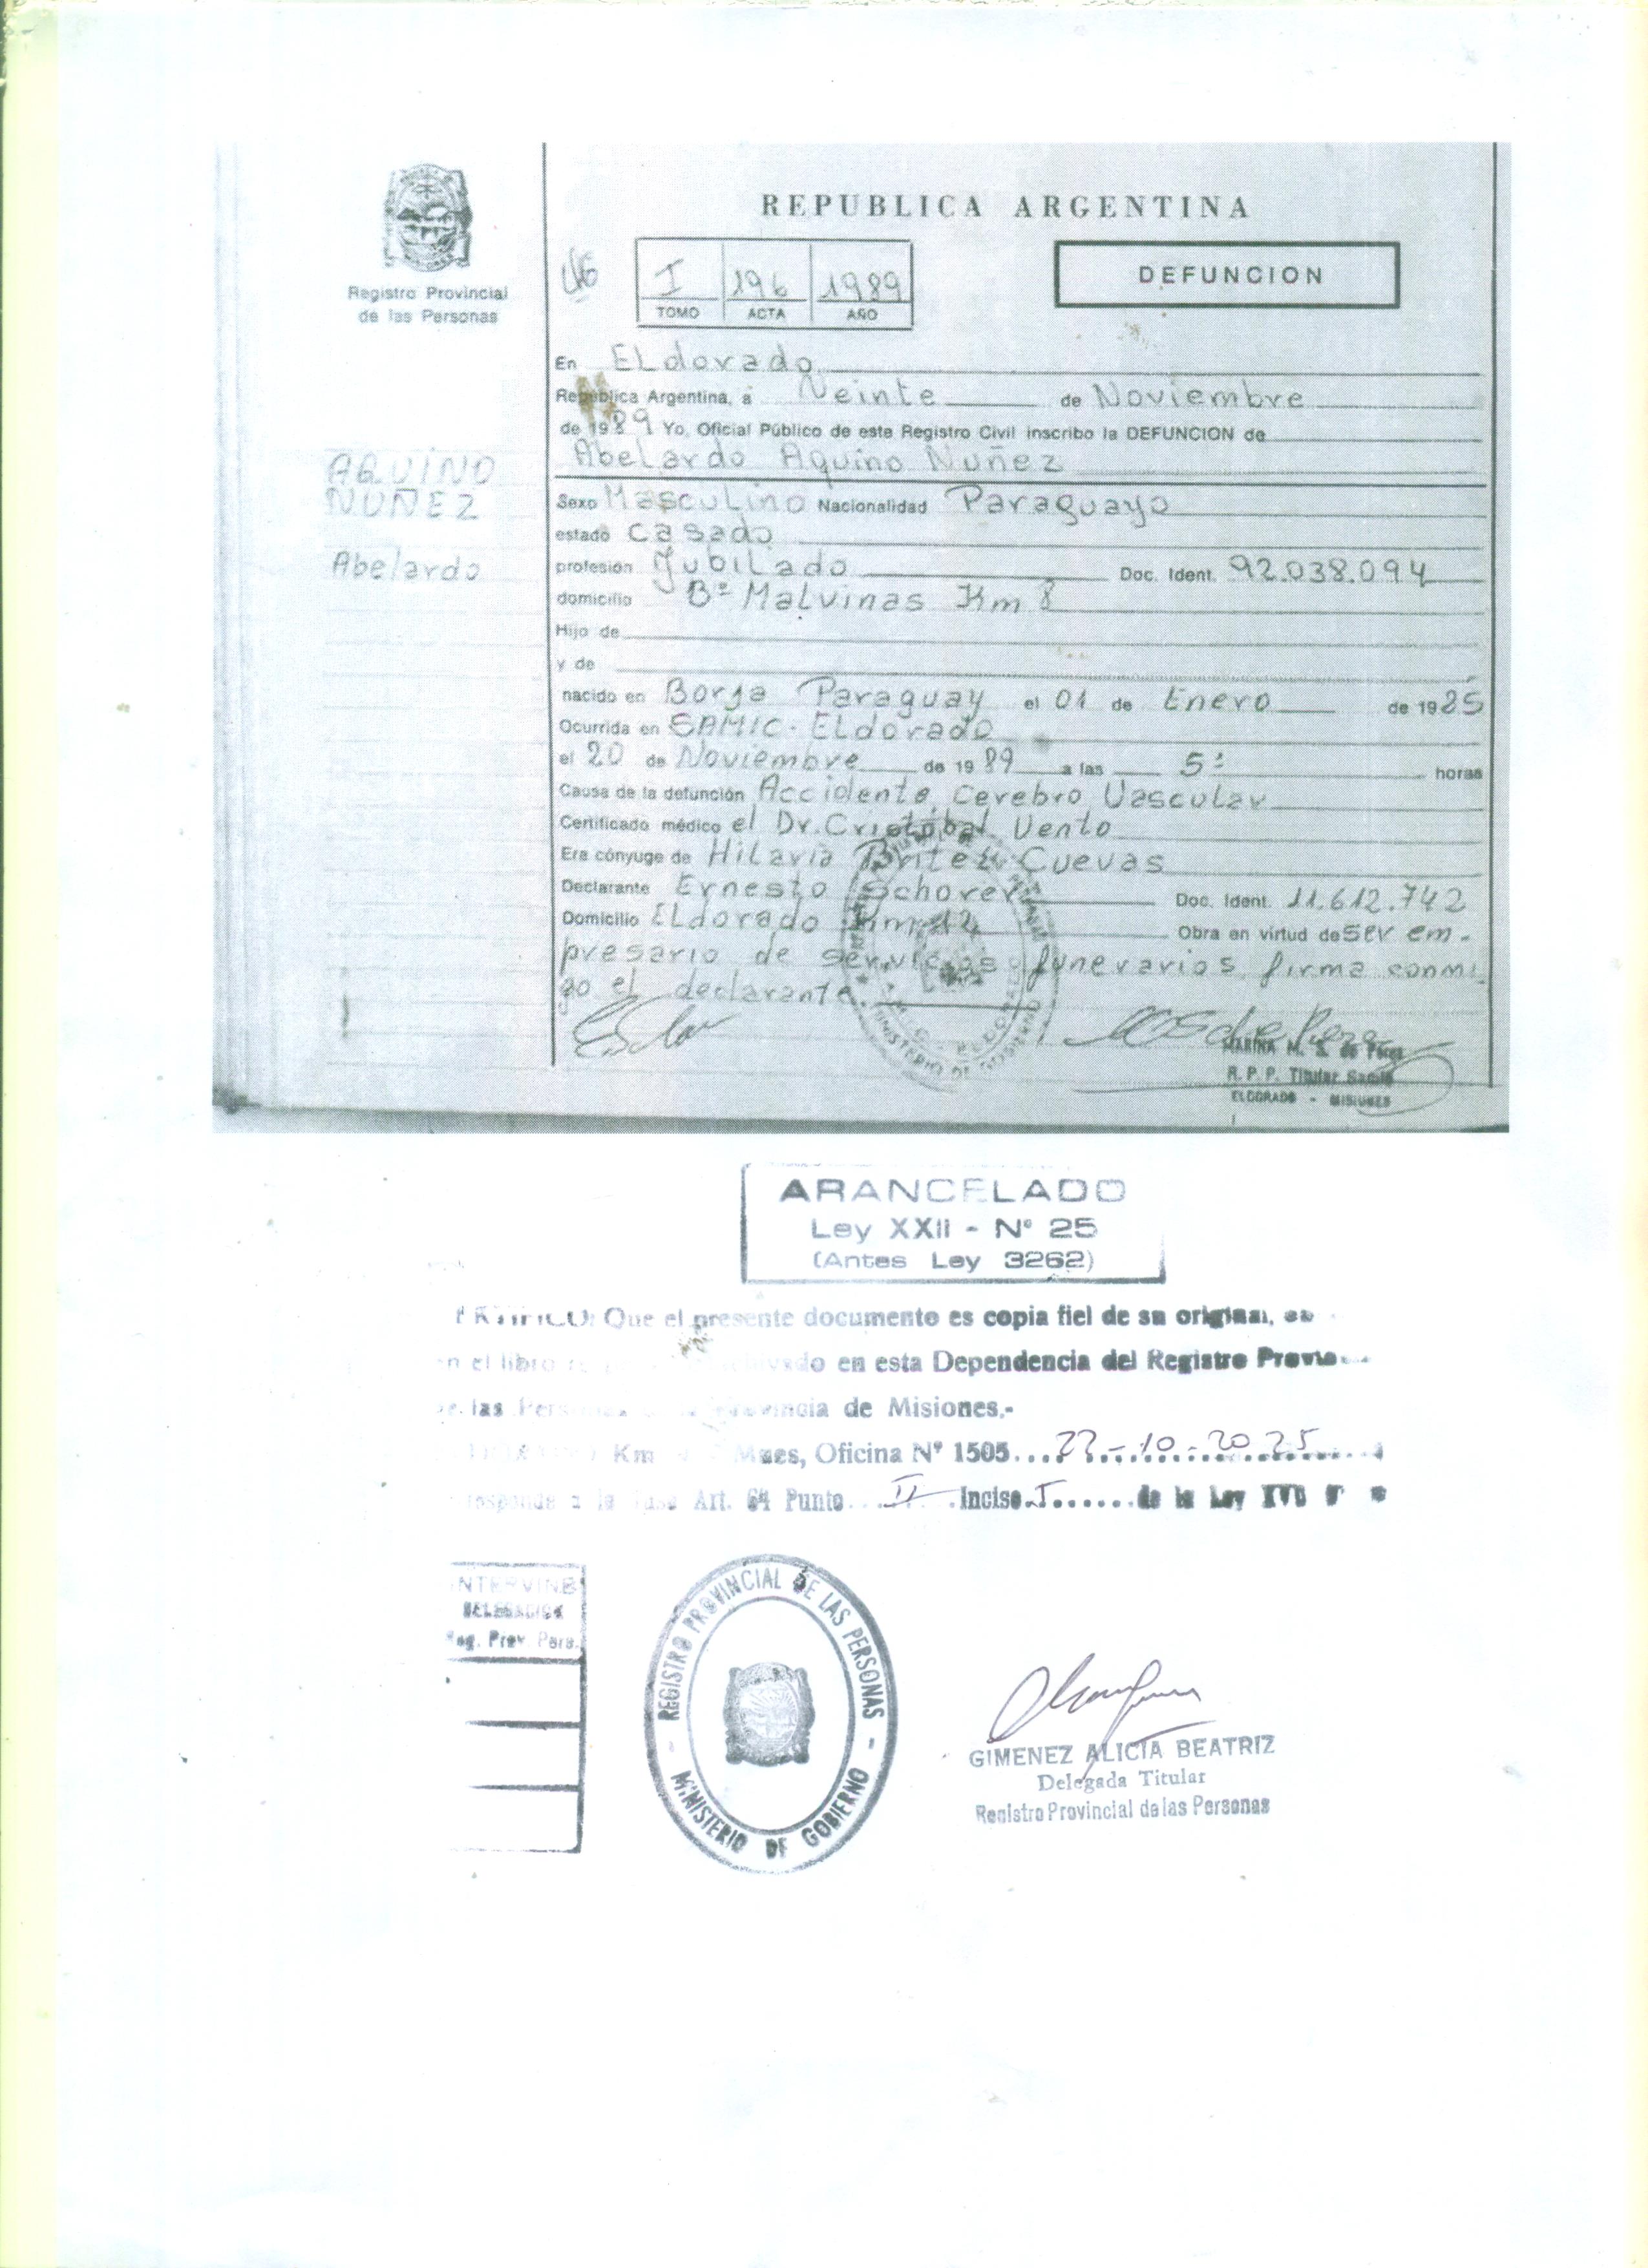 REPUBLICA ARGENTINA
Registro Provincial
de las Personas
I 196 1989
TOMO ACTA AÑO
DEFUNCION
En ELdorado
República Argentina, a Veinte de Noviembre
de 1989 Yo, Oficial Público de este Registro Civil inscribo la DEFUNCION de
AbeLardo Aquino Nuñez
AQUINO
NUÑEZ
Abelardo
Sexo MascuLino Nacionalidad Paraguayo
estado casado
profesión JubiLado Doc. Ident. 92.038.094
domicilio Bº MaLvinas Km 8
Hijo de
y de
nacido en Borja Paraguay el 01 de Enero de 1925
Ocurrida en SAMIC. ELdorado
el 20 de Noviembre de 1989 a las 5: horas
Causa de la defunción Accidente Cerebro Vascular
Certificado médico el Dr. Cristobal Vento
Era cónyuge de HiLaria Britez Cuevas
Declarante Ernesto Schorer Doc. Ident. 11.612.742
Domicilio ELdorado Km 12 Obra en virtud de ser em-
presario de servicios funerarios, firma conmi
go el declarante
MARINA M. S. de Perez
R. P. P. Titular Samic
ELDORADO - MISIONES
ARANCELADO
Ley XXII - Nº 25
(Antes Ley 3262)
Que el presente documento es copia fiel de su original,
en el libro en esta Dependencia del Registro
de las Provincia de Misiones.-
Km Oficina Nº 1505 22-10-2025
Art. 64 Punto II Inciso I de la Ley
INTERVINE
DELEGACION
Reg. Prov. Pers.
REGISTRO PROVINCIAL DE LAS PERSONAS
- MINISTERIO DE GOBIERNO -
GIMENEZ ALICIA BEATRIZ
Delegada Titular
Registro Provincial de las Personas